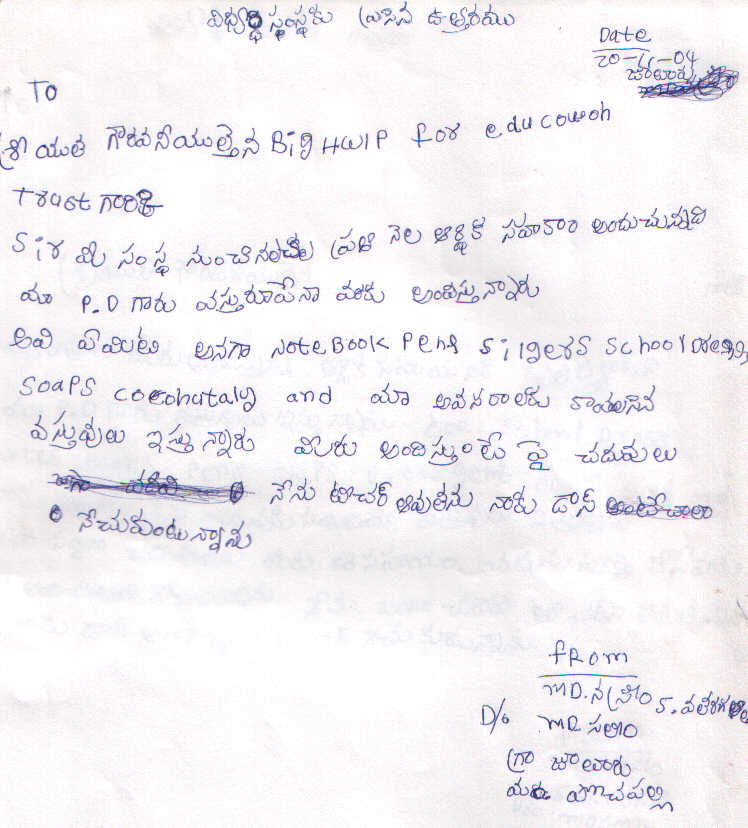 విద్యార్ధి సంస్థకు వ్రాసిన ఉత్తరము
Date
20-11-04
జూలూరు
TO
శ్రీ యుత గౌరవనీయులైన Big Help for education
Trust గారికి
Sir మీ సంస్థ నుంచి ప్రతి నెల ఆర్థిక సహకారం అందుచున్నది
మా P.D గారు వస్తురూపేనా మాకు అందిస్తున్నారు
అవి ఏమిటి అనగా Note Book Pens School
Soaps and మా అవసరాలకు కావలసిన
వస్తువులు ఇస్తున్నారు మీరు అందిస్తుంటే పై చదువులు
నేను టీచర్ అవుతను నాకు డాన్స్ అంటే చాలా
నేచుకుంటున్నాను
FROM
MD. 5.వతరగతి
D/o MD సలీం
గ్రా జూలూరు
మం పోచంపల్లి